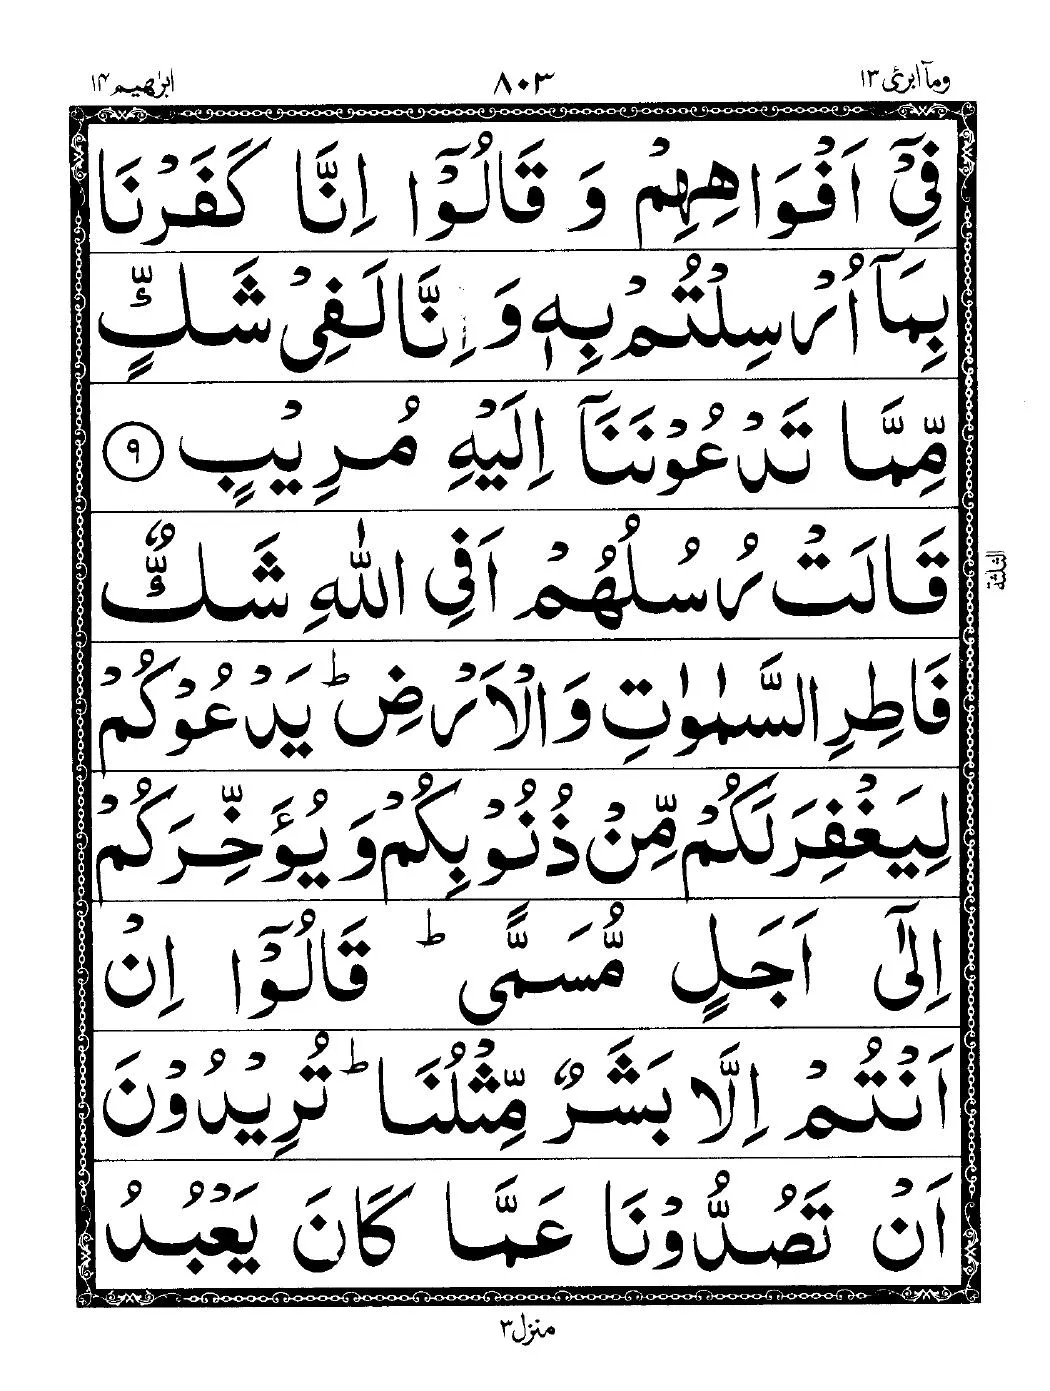 ومآ ابرئ ١٣
٨٠٣
ابرٰهيم ١٤
فِيْٓ اَفْوَاهِهِمْ وَ قَالُوْٓا اِنَّا كَفَرْنَا
بِمَآ اُرْسِلْتُمْ بِهٖ وَ اِنَّا لَفِيْ شَكٍّ
مِّمَّا تَدْعُوْنَنَآ اِلَيْهِ مُرِيْبٍ ٩
قَالَتْ رُسُلُهُمْ اَفِي اللّٰهِ شَكٌّ
الثلثة
فَاطِرِ السَّمٰوٰتِ وَالْاَرْضِ ؕ يَدْعُوْكُمْ
لِيَغْفِرَ لَكُمْ مِّنْ ذُنُوْبِكُمْ وَ يُؤَخِّرَكُمْ
اِلٰٓى اَجَلٍ مُّسَمًّى ؕ قَالُوْٓا اِنْ
اَنْتُمْ اِلَّا بَشَرٌ مِّثْلُنَا ؕ تُرِيْدُوْنَ
اَنْ تَصُدُّوْنَا عَمَّا كَانَ يَعْبُدُ
منزل ٣